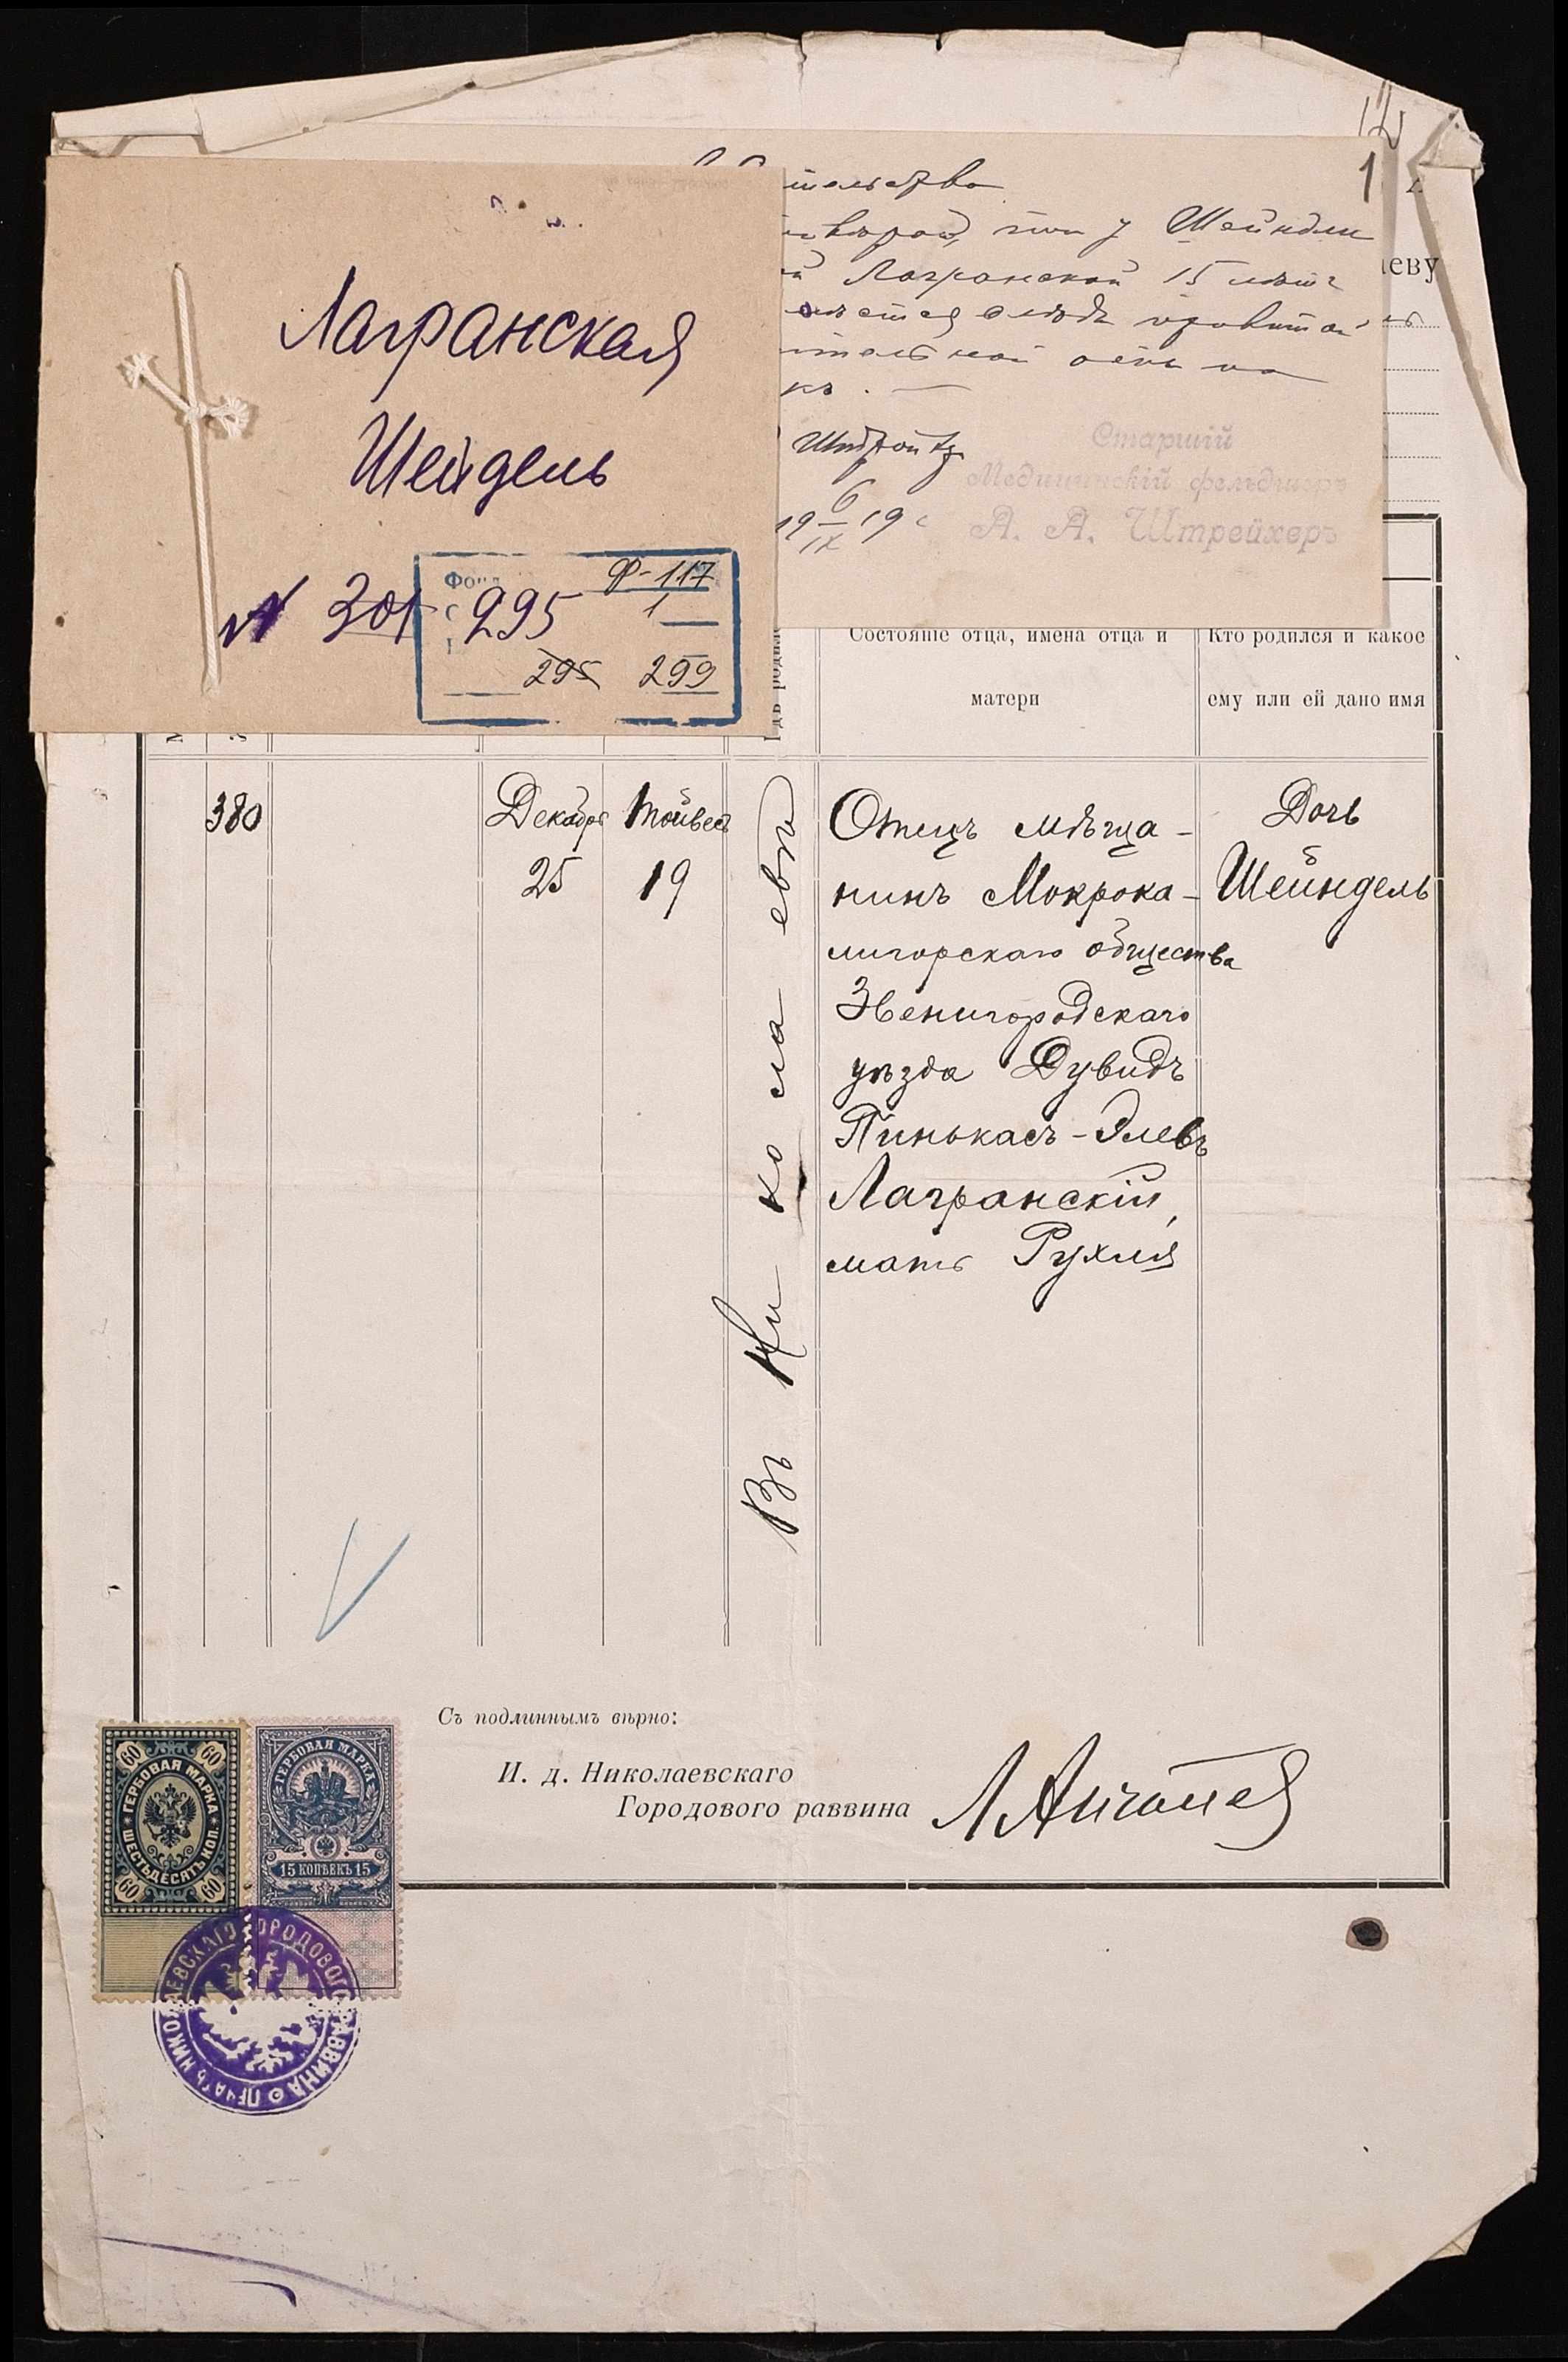 Лагранская
Шейдель
№ 301
Фонд Ф-117
295 1
295 299
1
тельство
что у Шейндли
Лагранской 15 летъ
Старшій
Медицинскій фельдшеръ
А. А. Штрейхеръ
19 6/IX 19
еву
Состояніе отца, имена отца и
матери
Кто родился и какое
ему или ей дано имя
380
Декабря
25
Тейвес
19
Въ Николаевѣ
Отецъ мѣща-
нинъ Мокрока-
лигорскаго общества
Звенигородскаго
уѣзда Дувидъ
Пинькасъ-Элевъ
Лагранскій,
мать Рухля
Дочь
Шейндель
Съ подлиннымъ вѣрно:
И. д. Николаевскаго
Городового раввина
60 60
ГЕРБОВАЯ МАРКА
ШЕСТЬДЕСЯТЬ КОП.
60 60
ГЕРБОВАЯ МАРКА
15 КОПѢЕКЪ 15
ПЕЧАТЬ НИКОЛАЕВСКАГО ГОРОДОВОГО РАВВИНА